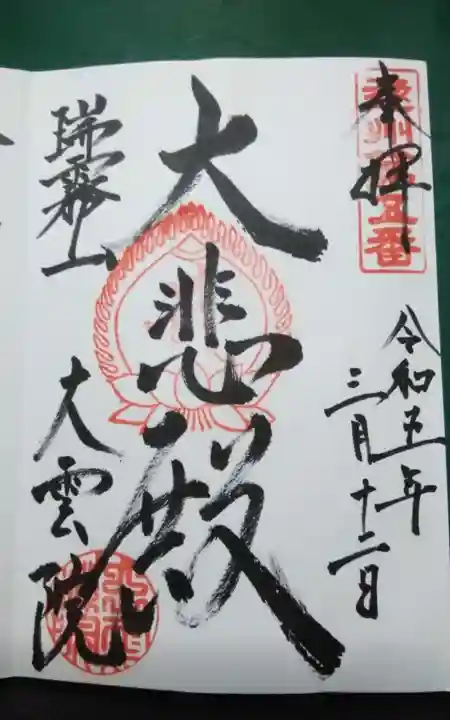 奉拝
遠州 五番
令和五年
三月十二日
大悲殿
瑞霧山
大雲院